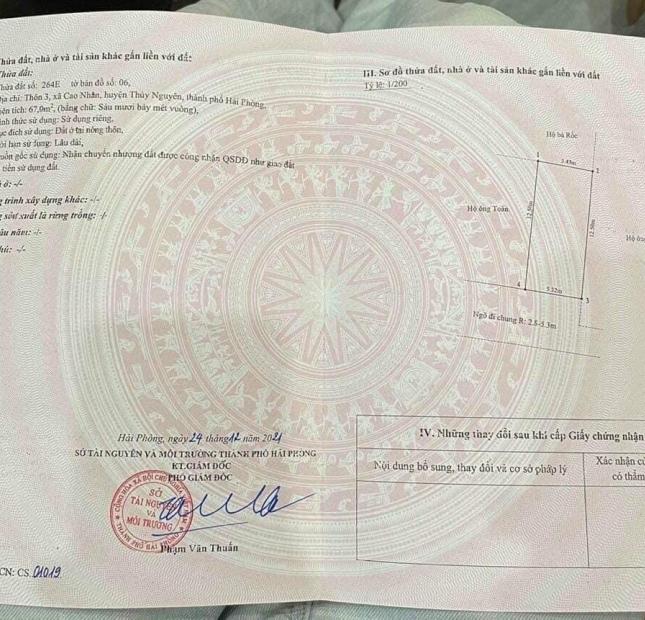 Thửa đất, nhà ở và tài sản khác gắn liền với đất:
Thửa đất:
hửa đất số: 264E tờ bản đồ số: 06,
ịa chỉ: Thôn 3, xã Cao Nhân, huyện Thủy Nguyên, thành phố Hải Phòng,
iện tích: 67,0m², (bằng chữ: Sáu mươi bảy mét vuông),
ình thức sử dụng: Sử dụng riêng,
ục đích sử dụng: Đất ở tại nông thôn,
ời hạn sử dụng: Lâu dài,
uồn gốc sử dụng: Nhận chuyển nhượng đất được công nhận QSDĐ như giao đất
tiền sử dụng đất.
ở: -/-
g trình xây dựng khác: -/-
g sản xuất là rừng trồng: -/-
âu năm: -/-
hú: -/-
III. Sơ đồ thửa đất, nhà ở và tài sản khác gắn liền với đất
Tỷ lệ: 1/200
Hộ bà Rốc
1
5.43m
2
Hộ ông Toàn
12.50m
12.50m
Hộ ôn
4
5.32m
3
Ngõ đi chung R: 2.8-3.3m
Hải Phòng, ngày 24 tháng 12 năm 2021
SỞ TÀI NGUYÊN VÀ MÔI TRƯỜNG THÀNH PHỐ HẢI PHÒNG
KT.GIÁM ĐỐC
PHÓ GIÁM ĐỐC
CỘNG HÒA XÃ HỘI CHỦ NGHĨA VIỆT NAM
SỞ
TÀI NGUYÊN
VÀ
MÔI TRƯỜNG
THÀNH PHỐ HẢI PHÒNG
Phạm Văn Thuấn
CN: CS.01019
IV. Những thay đổi sau khi cấp Giấy chứng nhận
Nội dung bổ sung, thay đổi và cơ sở pháp lý
Xác nhận củ
có thẩm